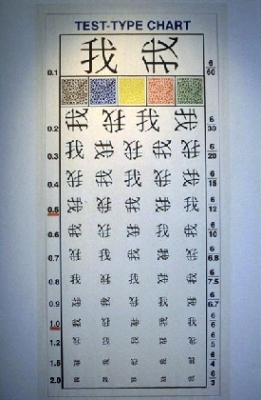 TEST-TYPE CHART
0.1 我 我 6/60
0.2 我 我 我 我 6/30
0.3 我 我 我 我 我 6/20
0.4 我 我 我 我 我 6/15
0.5 我 我 我 我 我 6/12
0.6 我 我 我 我 我 6/10
0.7 我 我 我 我 我
0.8 我 我 我 我 我 6/7.5
0.9 我 我 我 我 我 6/6.7
1.0 我 我 我 我 我 6/6
1.2 6/5
1.5 6/4
2.0 6/3